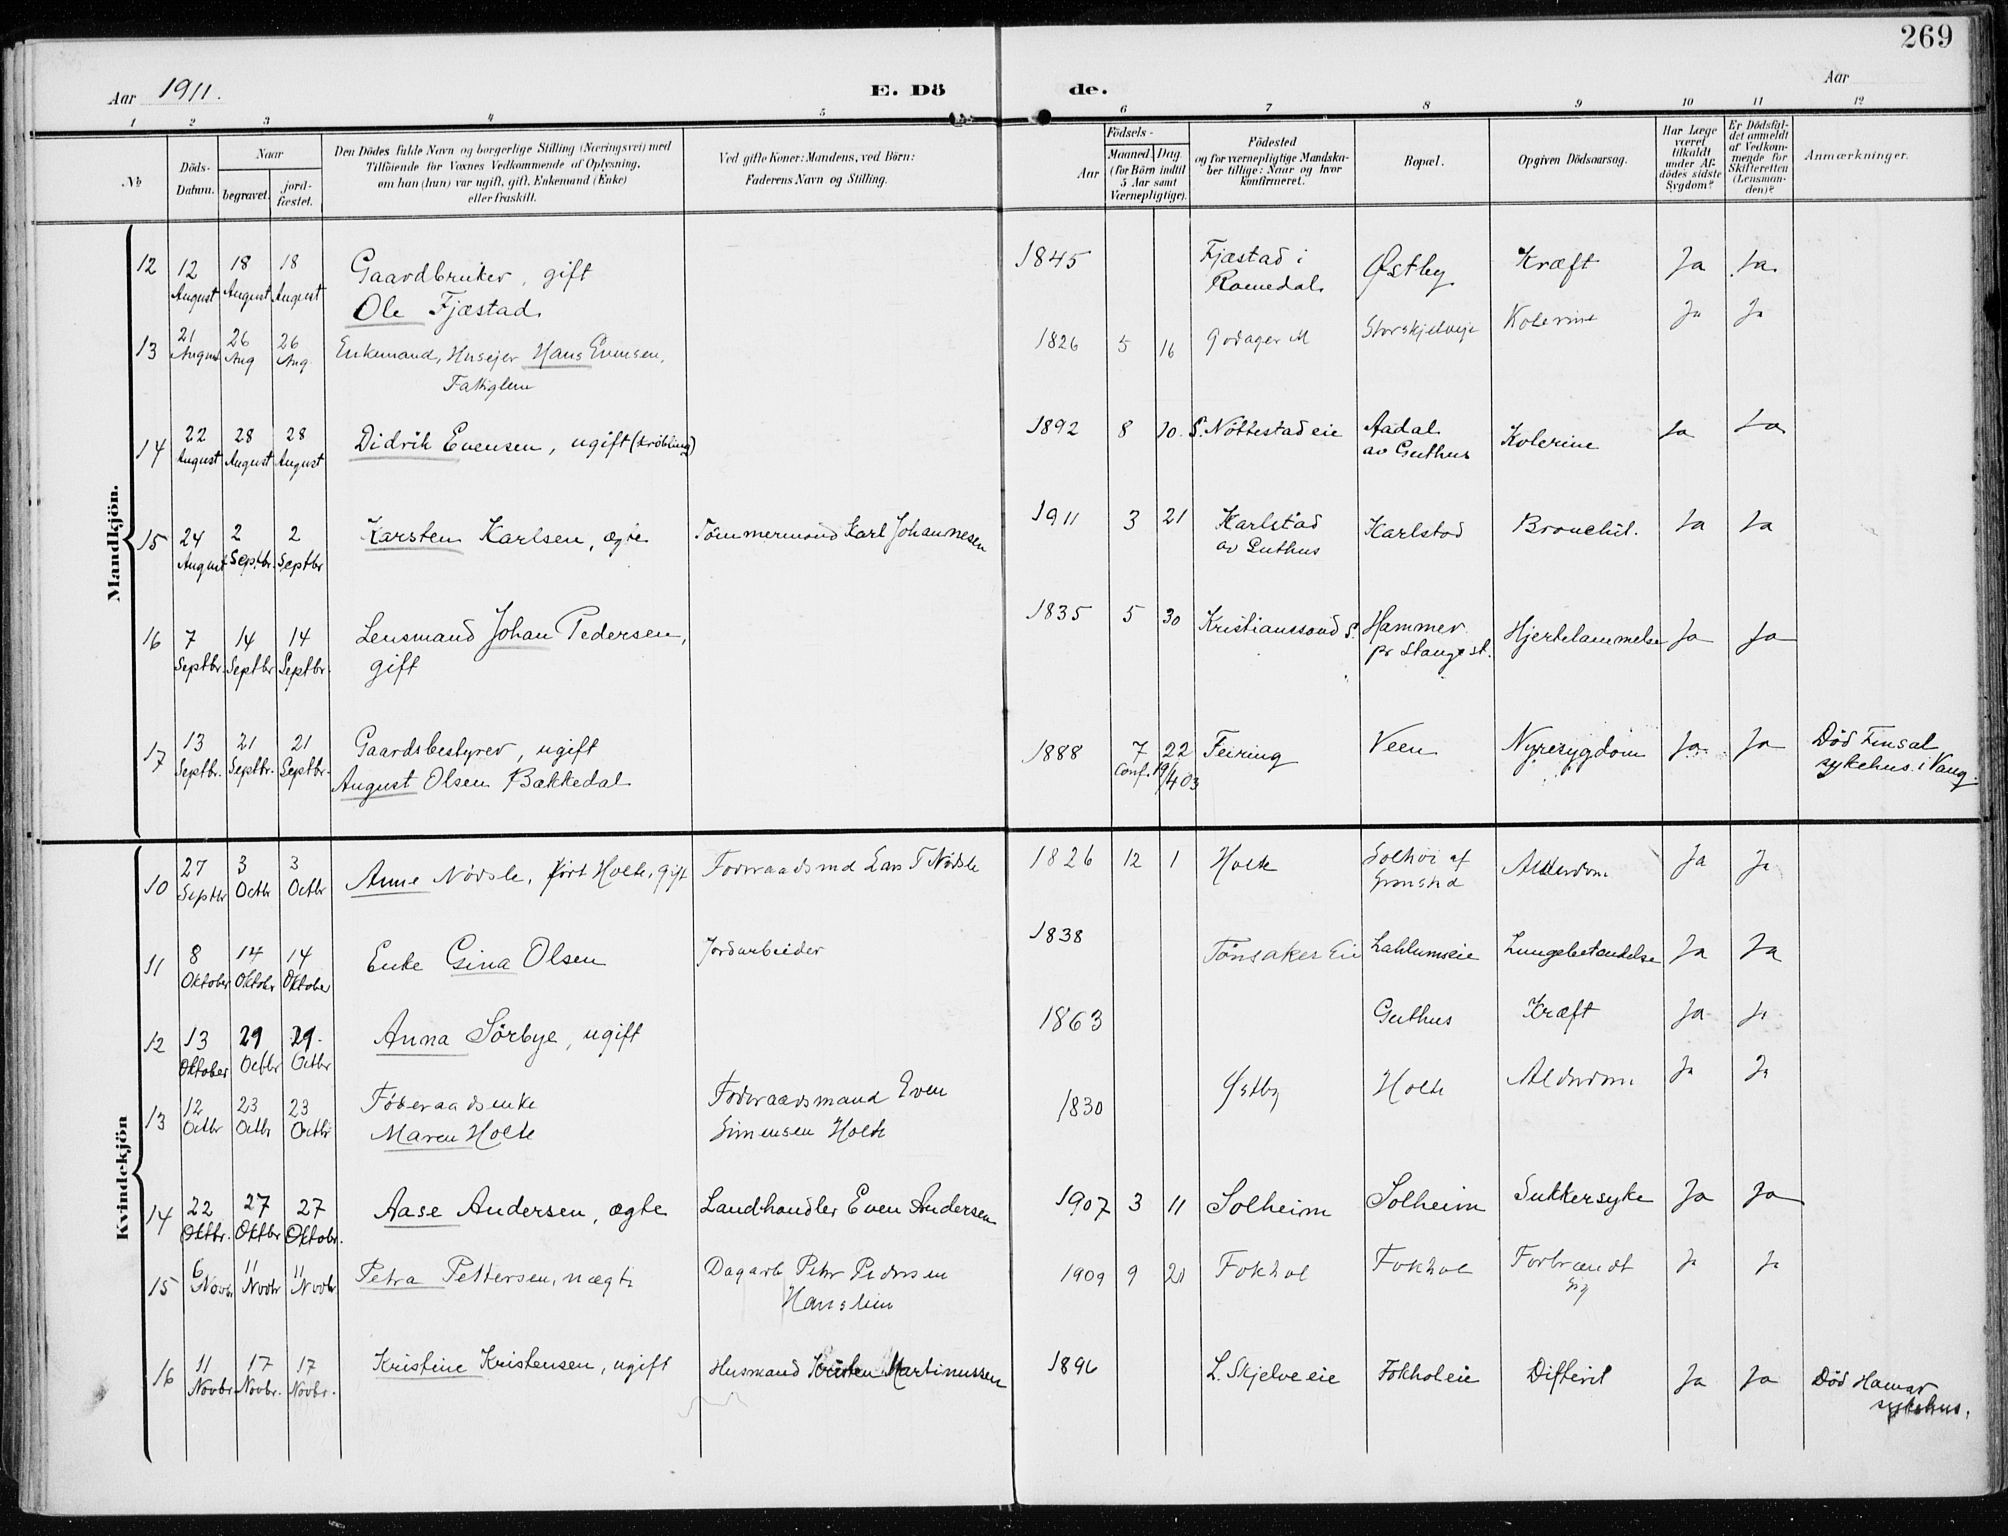 269
Aar 1911.
E. Dö de.
Aar
1 2 3 4 5 6 7 8 9 10 11 12
No
Döds-Datum.
Naar
begravet.
jord-fæstet.
Den Dödes fulde Navn og borgerlige Stilling (Næringsvei) med
Tilföiende for Voxnes Vedkommende af Oplysning,
om han (hun) var ugift, gift, Enkemand (Enke)
eller fraskilt.
Ved gifte Koner: Mandens, ved Börn:
Faderens Navn og Stilling.
Födsels-
Aar
Maaned. Dag.
(for Börn indtil
5 Aar samt
Værnepligtige).
Födested
og for værnepligtige Mandska-
ber tillige: Naar og hvor
konfirmeret.
Bopæl.
Opgiven Dödsaarsag.
Har Læge
været
tilkaldt
under Af-
dödes sidste
Sygdom?
Er Dödsfal-
det anmeldt
af Vedkom-
mende for
Skifteretten
(Lensman-
den)?
Anmærkninger.
Mandkjön.
12 12 August 18 August 18 August Gaardbruker, gift
Ole Fjæstad
1845 Fjæstad i
Romedal Østby Kræft Ja Ja
13 21 August 26 Aug 26 Aug Enkemand, Husejer Hans Evensen,
1826 5 16 Godager Kolerine Ja Ja
14 22 August 28 August 28 August Didrik Evensen, ugift
1892 8 10. S. Nöttestad eie Aadal
av Guthus Kolerine Ja Ja
15 24 August 2 Septbr. 2 Septbr Karsten Karlsen, ægte Tömmermand Karl Johannesen
1911 3 21 Karlstad
av Guthus Karlstad Bronchit. Ja Ja
16 7 Septbr. 14 Septbr 14 Septbr. Lensmand Johan Pedersen,
gift
1835 5 30 Kristianssand S. Hammer
pr Stange st. Hjertelammelse Ja Ja
17 13 Septbr. 21 Septbr. 21 Septbr. Gaardsbestyrer, ugift
August Olsen Bækkedal
1888 7 22 Conf. 19/4 03 Feiring Veen Nyresygdom Ja Ja Död Finsal
sykehus i Vang.
Kvindekjön
10 27 Septbr 3 Octbr 3 Octbr Anne Nödsle, født Holte, gift Foderaadsmd Lars T Nödsle
1826 12 1 Holte Solhöi af
Alderdom Ja Ja
11 8 Oktober 14 Oktobr 14 Oktober Enke Gina Olsen Jordarbeider
1838 Tönsaker Eie Lahlumseie Lungebetændelse Ja Ja
12 13 Oktober 29 Octbr 29. Octbr Anna Sörbye, ugift
1863 Guthus Kræft Ja Ja
13 12 Octbr 23 Octbr 23 Octbr Föderaadsenke
Maren Holte Foderaadsmand Even
Simensen Holte
1830 Østby Holte Alderdom Ja Ja
14 22 Oktbr. 27 Oktbr 27 Oktobr. Aase Andersen, ægte Landhandler Even Andersen
1907 3 11 Solheim Solheim Sukkersyke Ja Ja
15 6 Novbr 11 Novbr 11 Novbr Petra Pettersen, uægte Dagarb Petr Pedersen
1909 9 21 Fokhol Fokhol Forbrændt
sig Ja Ja
16 11 Novbr 17 Novbr. 17 Novbr. Kristine Kristensen, ugift Husmand Kristen Martinussen
1896 L. Skjelve eie Fokhol eie Difterit Ja Ja Död Hamar
sykehus.